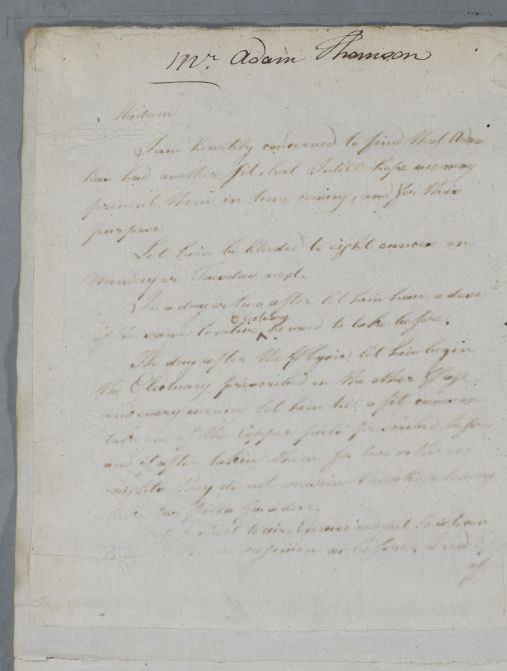 Mr. Adam Thomson
Madam
I am heartily concerned to find that Adam
has had another fit, but I still hope we may
prevent them in time coming, and for this
purpose
Let him be blooded to eight ounces on
Monday or Tuesday next.
In a day or two after let him have a dose
of the same laxative he used to take before.
The day after the Physic let him begin
the Electuary prescribed on the other Page
and every evening let him till a fit comes on
take one of the Copper pills prescribed before
and if after taking them for two or three
nights they do not occasion Vomiting he may
take two pills for a dose.
regimen as before, and
if